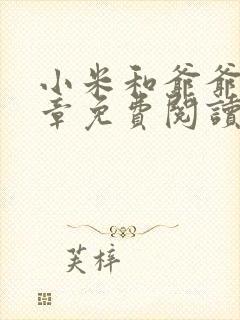 小米和爺爺
章免費閱讀
芙梓